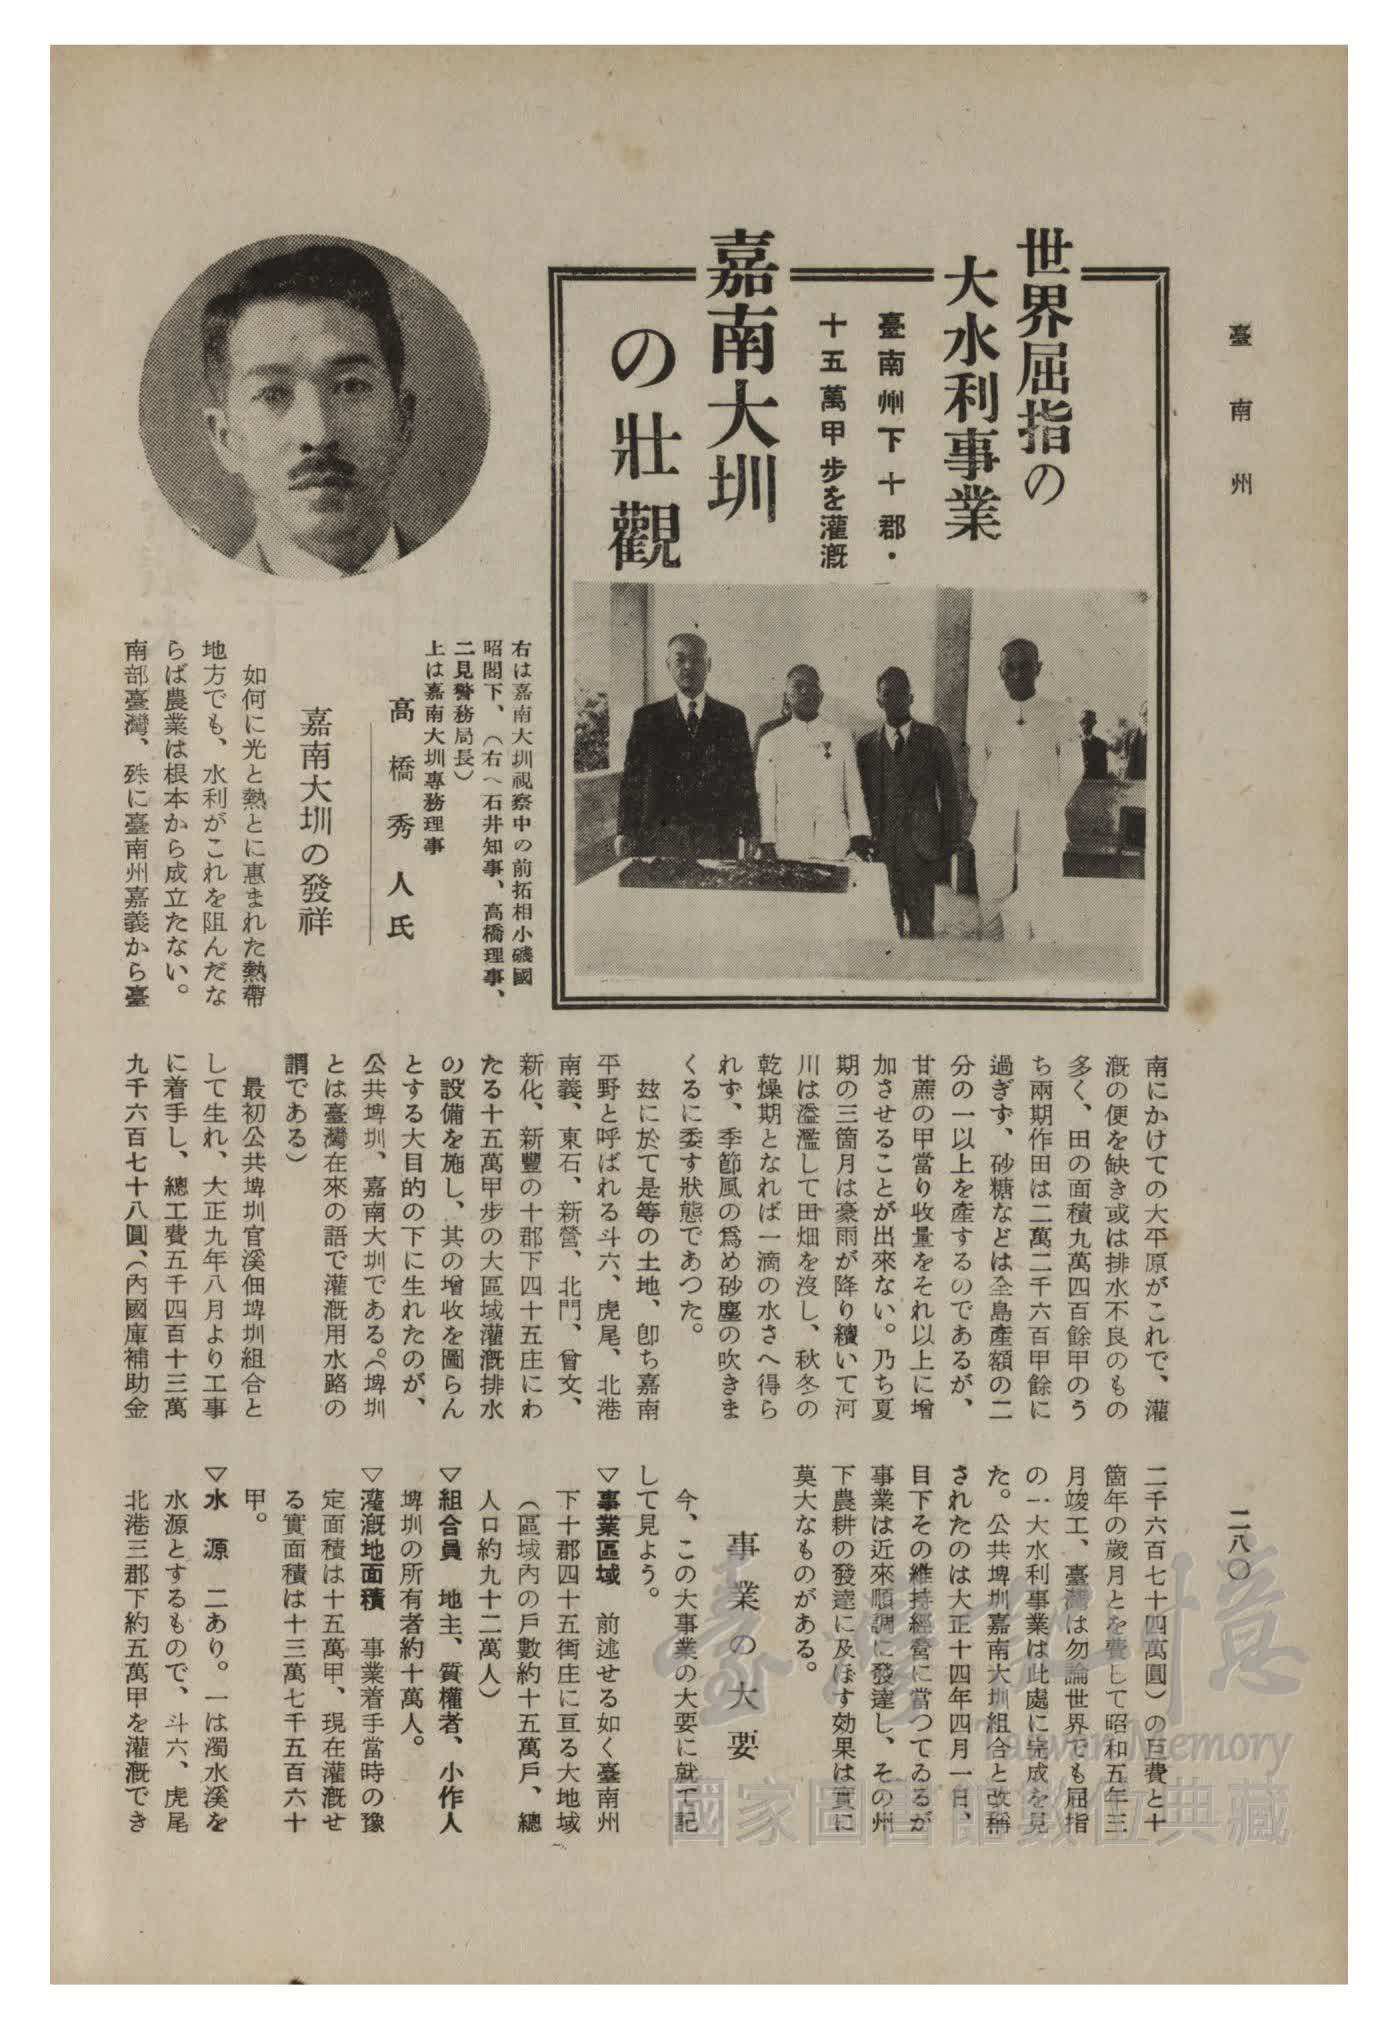 臺南州
世界屈指の
大水利事業
臺南州下十郡・
十五萬甲步を灌漑
嘉南大圳
の壯觀
右は嘉南大圳視察中の前拓相小磯國
昭閣下、（右へ石井知事、高橋理事、
二見警務局長）
上は嘉南大圳專務理事
高橋秀人氏
嘉南大圳の發祥
如何に光と熱とに惠まれた熱帶
地方でも、水利がこれを阻んだな
らば農業は根本から成立たない。
南部臺灣、殊に臺南州嘉義から臺
南にかけての大平原がこれで、灌
漑の便を缺き或は排水不良のもの
多く、田の面積九萬四百餘甲のう
ち兩期作田は二萬二千六百甲餘に
過ぎず、砂糖などは全島產額の二
分の一以上を產するのであるが、
甘蔗の甲當り收量をそれ以上に增
加させることが出來ない。乃ち夏
期の三箇月は豪雨が降り續いて河
川は溢濫して田畑を沒し、秋冬の
乾燥期となれば一滴の水さへ得ら
れず、季節風の爲め砂塵の吹きま
くるに委す狀態であつた。
玆に於て是等の土地、卽ち嘉南
平野と呼ばれる斗六、虎尾、北港
南義、東石、新營、北門、曾文、
新化、新豐の十郡下四十五庄にわ
たる十五萬甲步の大區域灌漑排水
の設備を施し、其の增收を圖らん
とする大目的の下に生れたのが、
公共埤圳、嘉南大圳である。（埤圳
とは臺灣在來の語で灌漑用水路の
謂である）
最初公共埤圳官溪佃埤圳組合と
して生れ、大正九年八月より工事
に着手し、總工費五千四百十三萬
九千六百七十八圓、（內國庫補助金
二千六百七十四萬圓）の巨費と十
箇年の歲月とを費して昭和五年三
月竣工、臺灣は勿論世界でも屈指
の一大水利事業は此處に完成を見
た。公共埤圳嘉南大圳組合と改稱
されたのは大正十四年四月一日、
目下その維持經營に當つてゐるが
事業は近來順調に發達し、その州
下農耕の發達に及ぼす効果は實に
莫大なものがある。
事業の大要
今、この大事業の大要に就て記
して見よう。
▽事業區域　前述せる如く臺南州
下十郡四十五街庄に亘る大地域
（區域內の戶數約十五萬戶、總
人口約九十二萬人）
▽組合員　地主、質權者、小作人
埤圳の所有者約十萬人。
▽灌漑地面積　事業着手當時の豫
定面積は十五萬甲、現在灌漑せ
る實面積は十三萬七千五百六十
甲。
▽水　源　二あり。一は濁水溪を
水源とするもので、斗六、虎尾
北港三郡下約五萬甲を灌漑でき
二八〇
臺灣記憶
Taiwan Memory
國家圖書館數位典藏